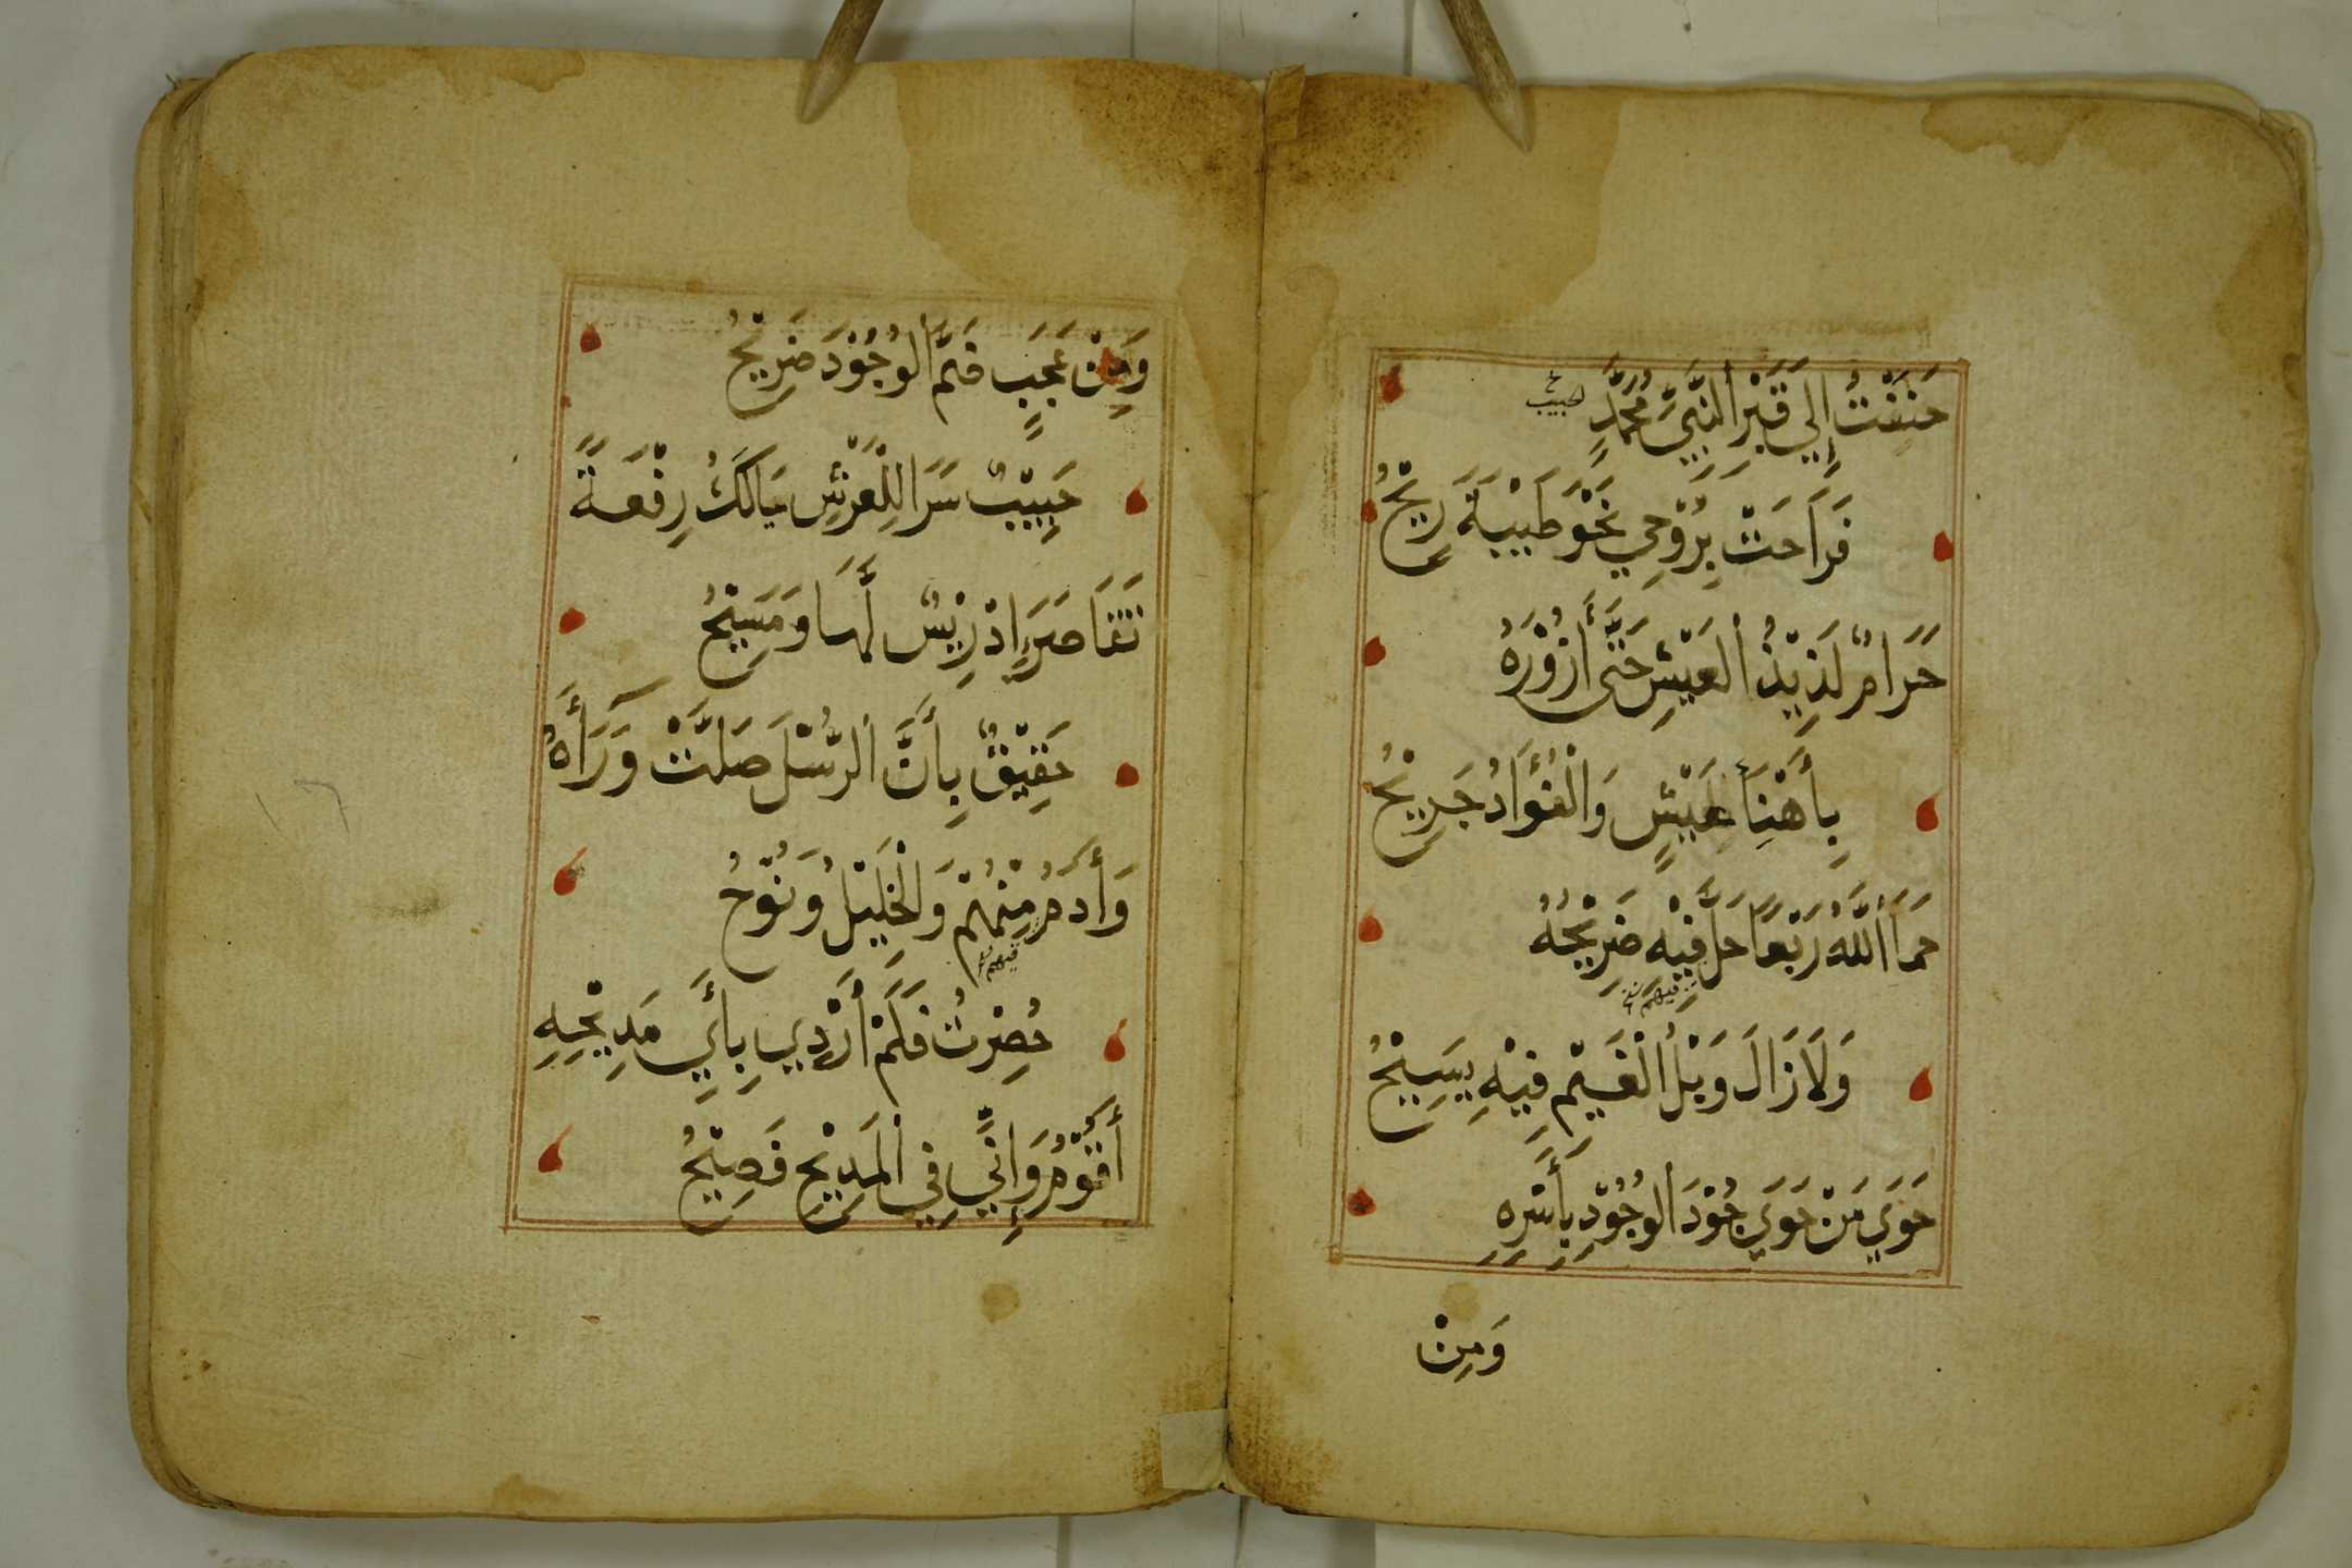 حَنِنْتُ إِلَي قَبْرِ النَّبِيِّ مُحَمَّدٍ
لحبيب خ
فَرَاحَتْ بِرُوْحِي نَحْوَ طَيْبَةَ رِيْحُ
حَرَامٌ لَذِيْذُ العَيْشِ حَتَّى أَزُوْرَهُ
بِأَهْنَا عَيْشٍ وَالْفُؤَادُ جَرِيْحُ
حَمَا اللَّهُ رَبْعًا حَلَّ فِيْهِ ضَرِيْحُهُ
فيهم
وَلَا زَالَ وَبْلُ الْغَيْمِ فِيْهِ يَسِيْحُ
حَوَي مَنْ حَوَي جُوْدَ الوُجُوْدِ بِأَسْرِهِ
وَمِنْ
وَمِنْ عَجَبٍ ضَمَّ الوُجُوْدَ ضَرِيْحُ
حَبِيْبٌ سَرَا لِلْعَرْشِ نَالَكَ رِفْعَةً
تَقَاصَرَ إِدْرِيْسٌ لَهَا وَمَسِيْحُ
حَقِيْقٌ بِأَنَّ الرُّسْلَ صَلَّتْ وَرَأَهُ
وَأَدَمُ مِنْهُمْ وَالْخَلِيْلُ وَنُوْحُ
فيهم
حُصِرْتُ فَلَمْ أَدْرِي بِأَيِّ مَدِيْحِهِ
أَقُوْمُ وَإِنِّي فِي الْمَدِيْحِ فَصِيْحُ